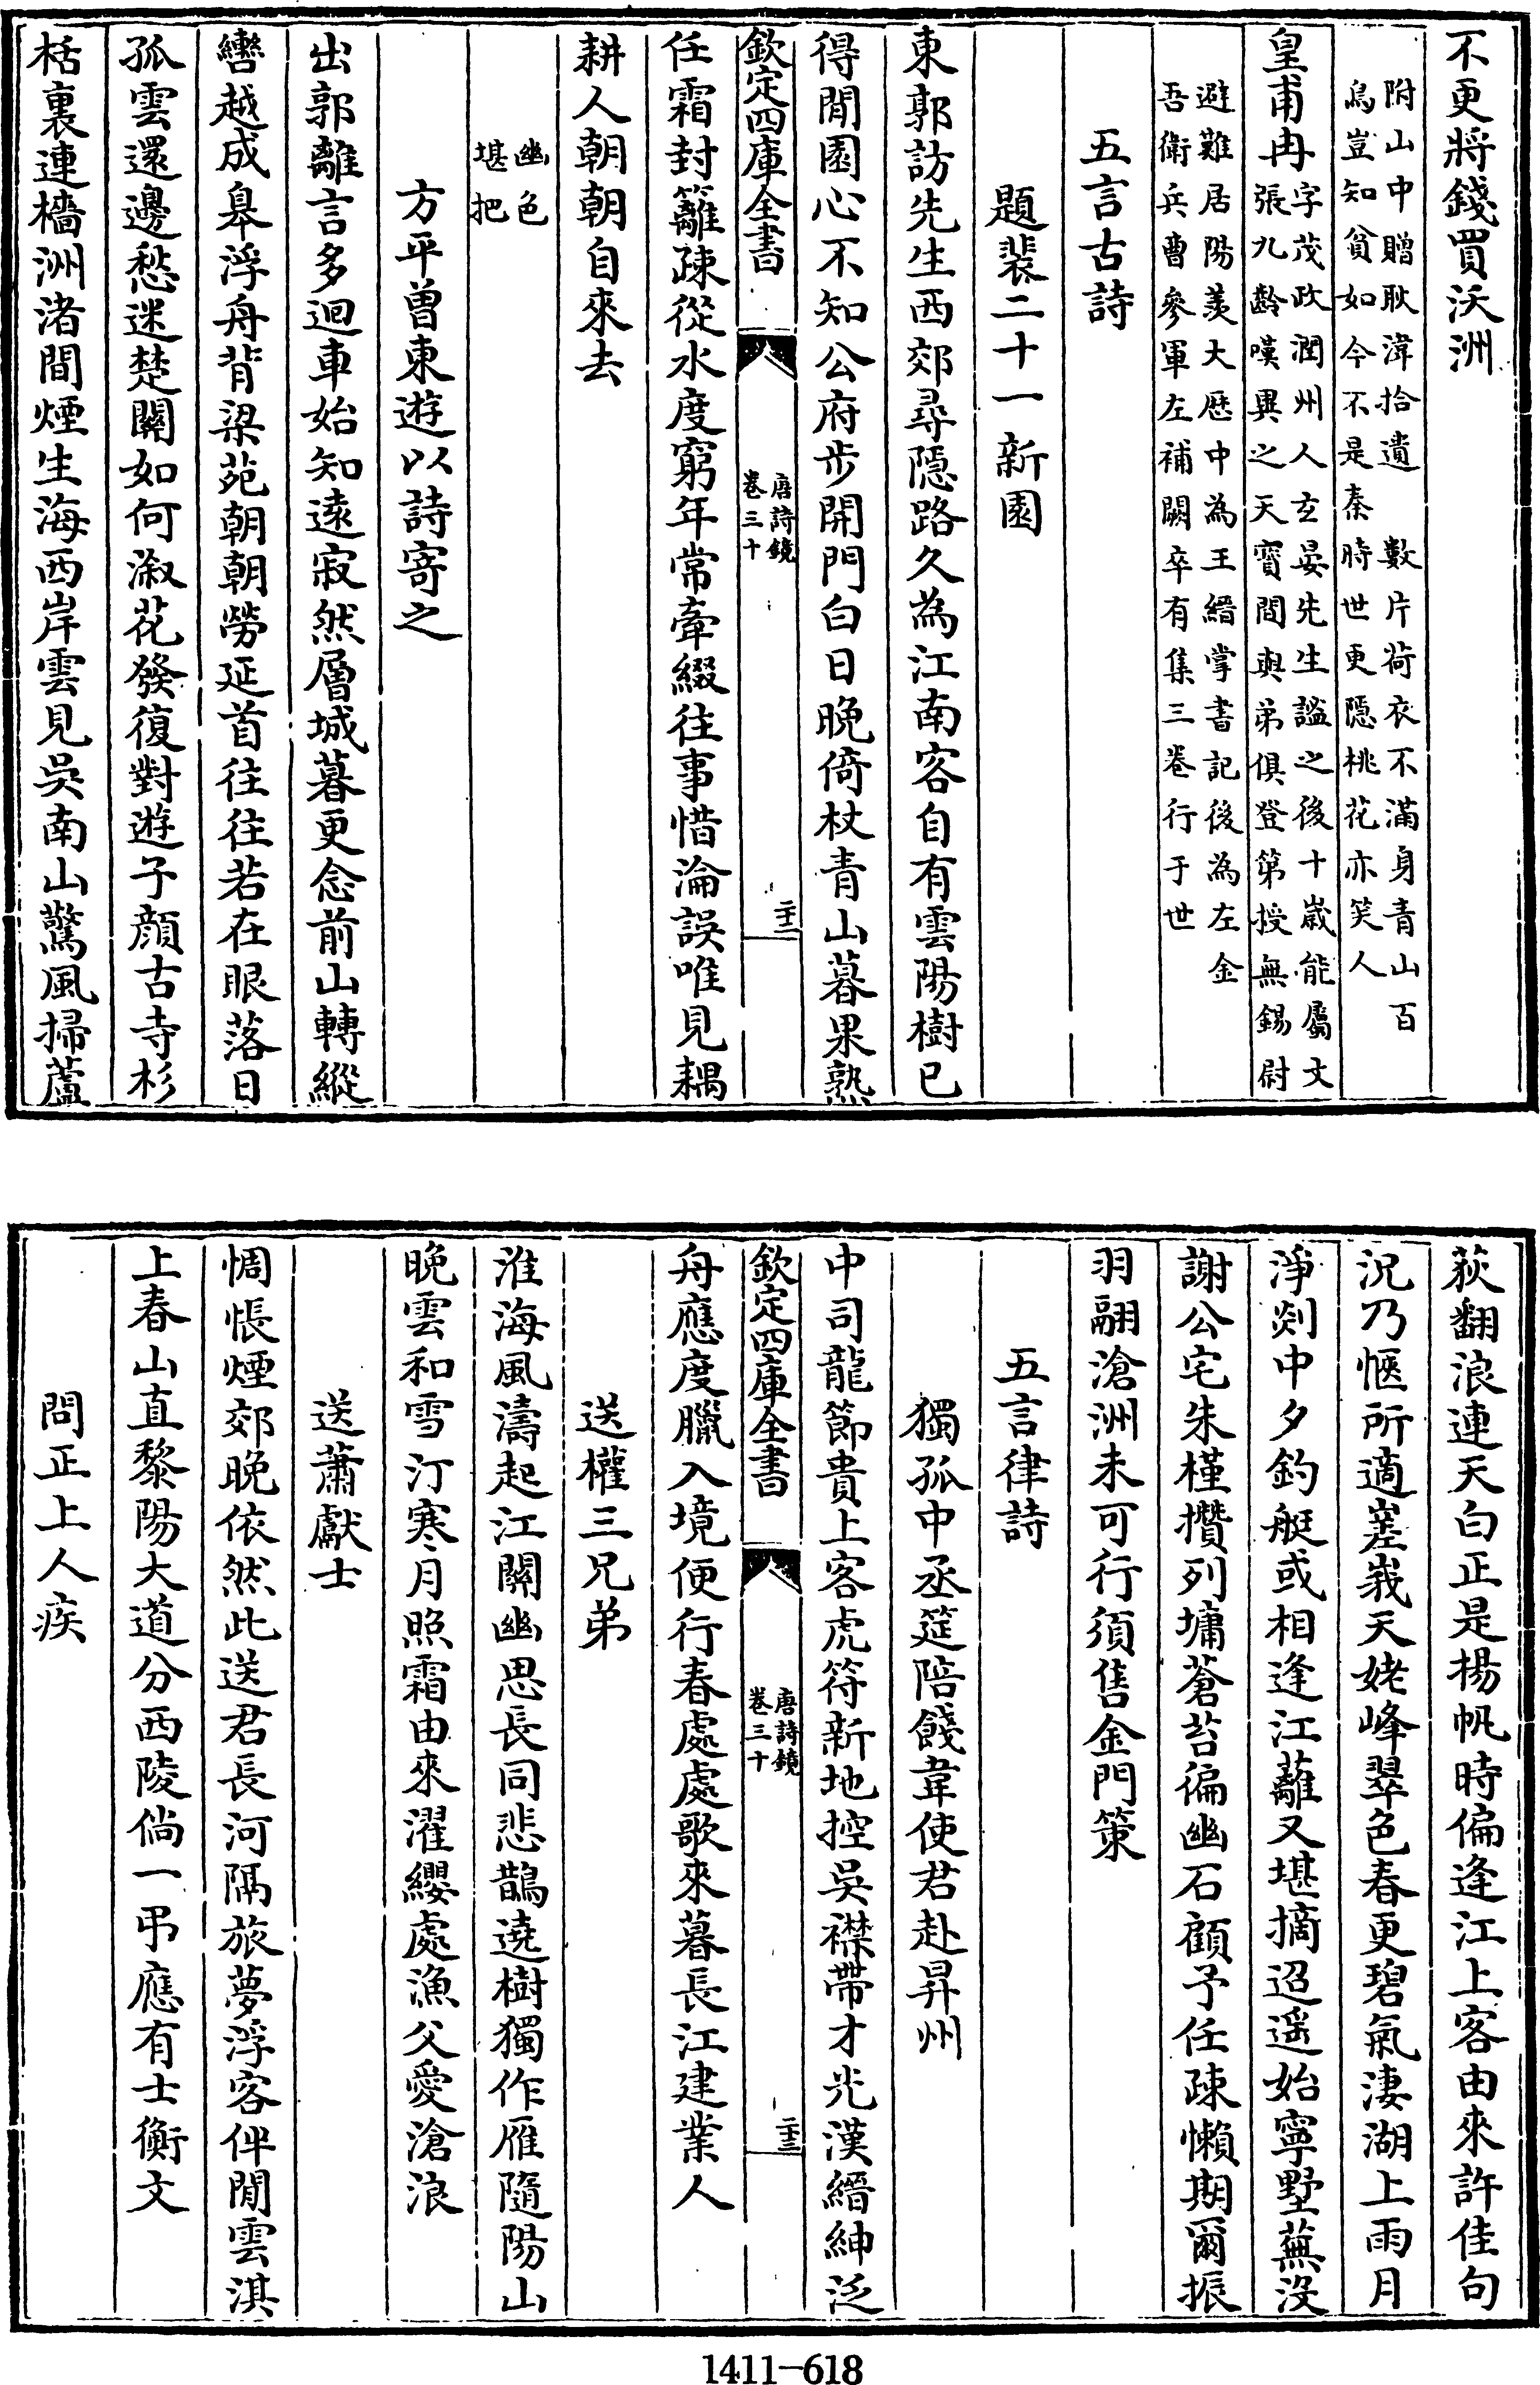 不更將錢買沃洲
附山中贈耿湋拾遺　數片荷衣不滿身青山百
鳥豈知貧如今不是秦時世更隠桃花亦笑人
皇甫冉字茂政潤州人玄晏先生謐之後十嵗能屬文
張九齡嘆異之天寳間與弟俱登第授無錫尉
避難居陽羨大歴中為王縉掌書記後為左金
吾衛兵曹參軍左補闕卒有集三卷行于世
五言古詩
題裴二十一新園
東郭訪先生西郊尋隠路久為江南客自有雲陽樹已
得閒園心不知公府步開門白日晚倚杖青山暮果熟
欽定四庫全書
唐詩鏡
卷三十
二十二
任霜封籬疎從水度窮年常牽綴往事惜淪誤唯見耦
耕人朝朝自來去
幽色
堪把
方平曾東遊以詩寄之
出郭離言多迴車始知遠寂然層城暮更念前山轉縱
轡越成臯浮舟背梁苑朝朝勞延首往往若在眼落日
孤雲還邊愁迷楚關如何溆花發復對遊子顔古寺杉
栝裏連檣洲渚間煙生海西岸雲見吳南山驚風掃蘆
荻翻浪連天白正是揚帆時偏逢江上客由來許佳句
況乃愜所適嵳峩天姥峰翠色春更碧氣淒湖上雨月
淨剡中夕釣艇或相逢江蘺又堪摘迢遥始寧墅蕪沒
謝公宅朱槿攢列墉蒼苔偏幽石顧予任疎懶期爾振
羽翮滄洲未可行須售金門策
五言律詩
獨孤中丞筵陪餞韋使君赴昇州
中司龍節貴上客虎符新地控吳襟帶才光漢縉紳泛
欽定四庫全書
唐詩鏡
卷三十
二十三
舟應度臘入境便行春處處歌來暮長江建業人
送權三兄弟
淮海風濤起江關幽思長同悲鵲遶樹獨作雁隨陽山
晚雲和雪汀寒月照霜由來濯纓處漁父愛滄浪
送蕭獻士
惆悵煙郊晚依然此送君長河隔旅夢浮客伴閒雲淇
上春山直黎陽大道分西陵倘一弔應有士衡文
問正上人疾
1411-618